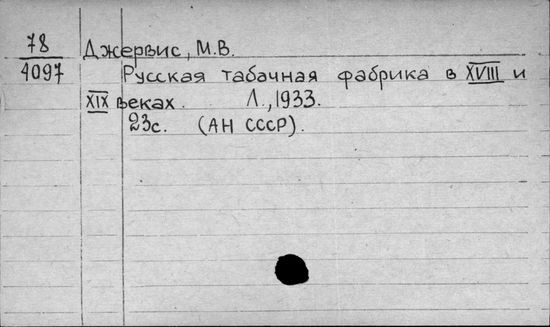 78 Джервис, М.В.
4097 Русская табачная фабрика в XVIII и
XIX веках. Л., 1933.
23с. (АН СССР).